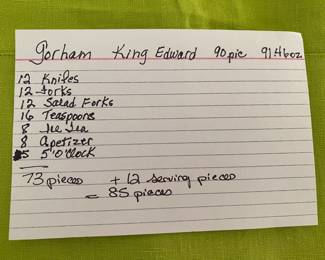 Gorham King Edward 90 pic 91.46oz
12 Knifes
12 Forks
12 Salad Forks
16 Teaspoons
8 Ice Tea
8 Apetizer
5 5'O'Clock
73 pieces + 12 serving pieces
= 85 pieces